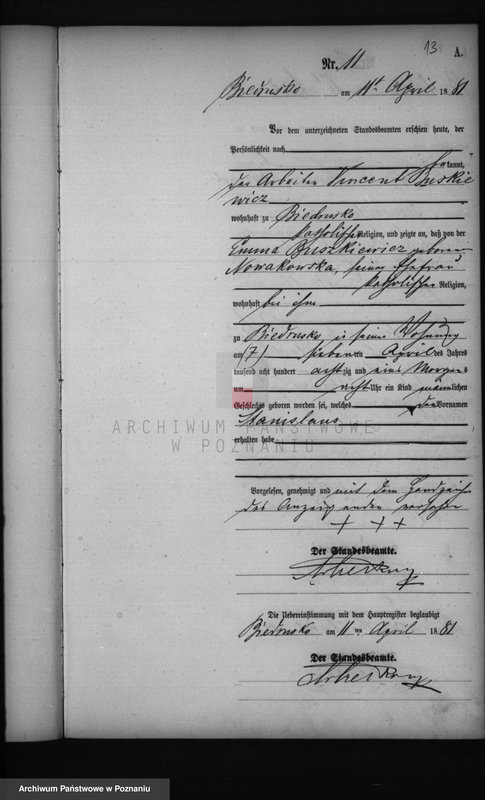 13 A.
Nr. 11
Biedrusko am 11t April 1881
Vor dem unterzeichneten Standesbeamten erschien heute, der
Persönlichkeit nach
bekannt,
der Arbeiter Vincent Buskie
wicz
wohnhaft zu Biedrusko
katholischer Religion, und zeigte an, daß von der
Emma Buszkiewicz geborenen
Nowakowska, seiner Ehefrau
katholischer Religion,
wohnhaft bei ihm
zu Biedrusko, in seiner Wohnung
am (7) siebenten April des Jahres
tausend acht hundert achtzig und eins Morgens
um acht Uhr ein Kind männlichen
Geschlechts geboren worden sei, welches den Vornamen
Stanislaus
erhalten habe
Vorgelesen, genehmigt und mit dem Handzeichen
des Anzeigenden versehen
+ + +
Der Standesbeamte.
Die Uebereinstimmung mit dem Hauptregister beglaubigt
Biedrusko am 11 ten April 1881
Der Standesbeamte.
ARCHIWUM PAŃSTWOWE
W POZNANIU
Archiwum Państwowe w Poznaniu